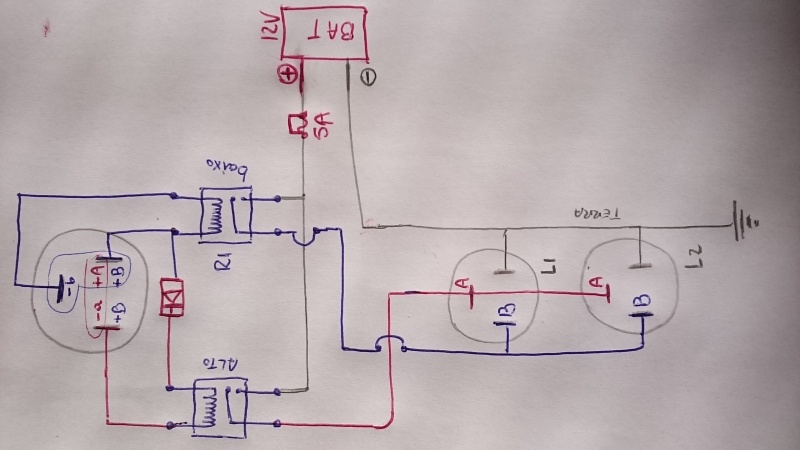 12V
BAT
+
-
5A
baixo
R1
TERRA
L1
L2
-b
+A
+B
-a
+B
A
B
A
B
ALTO